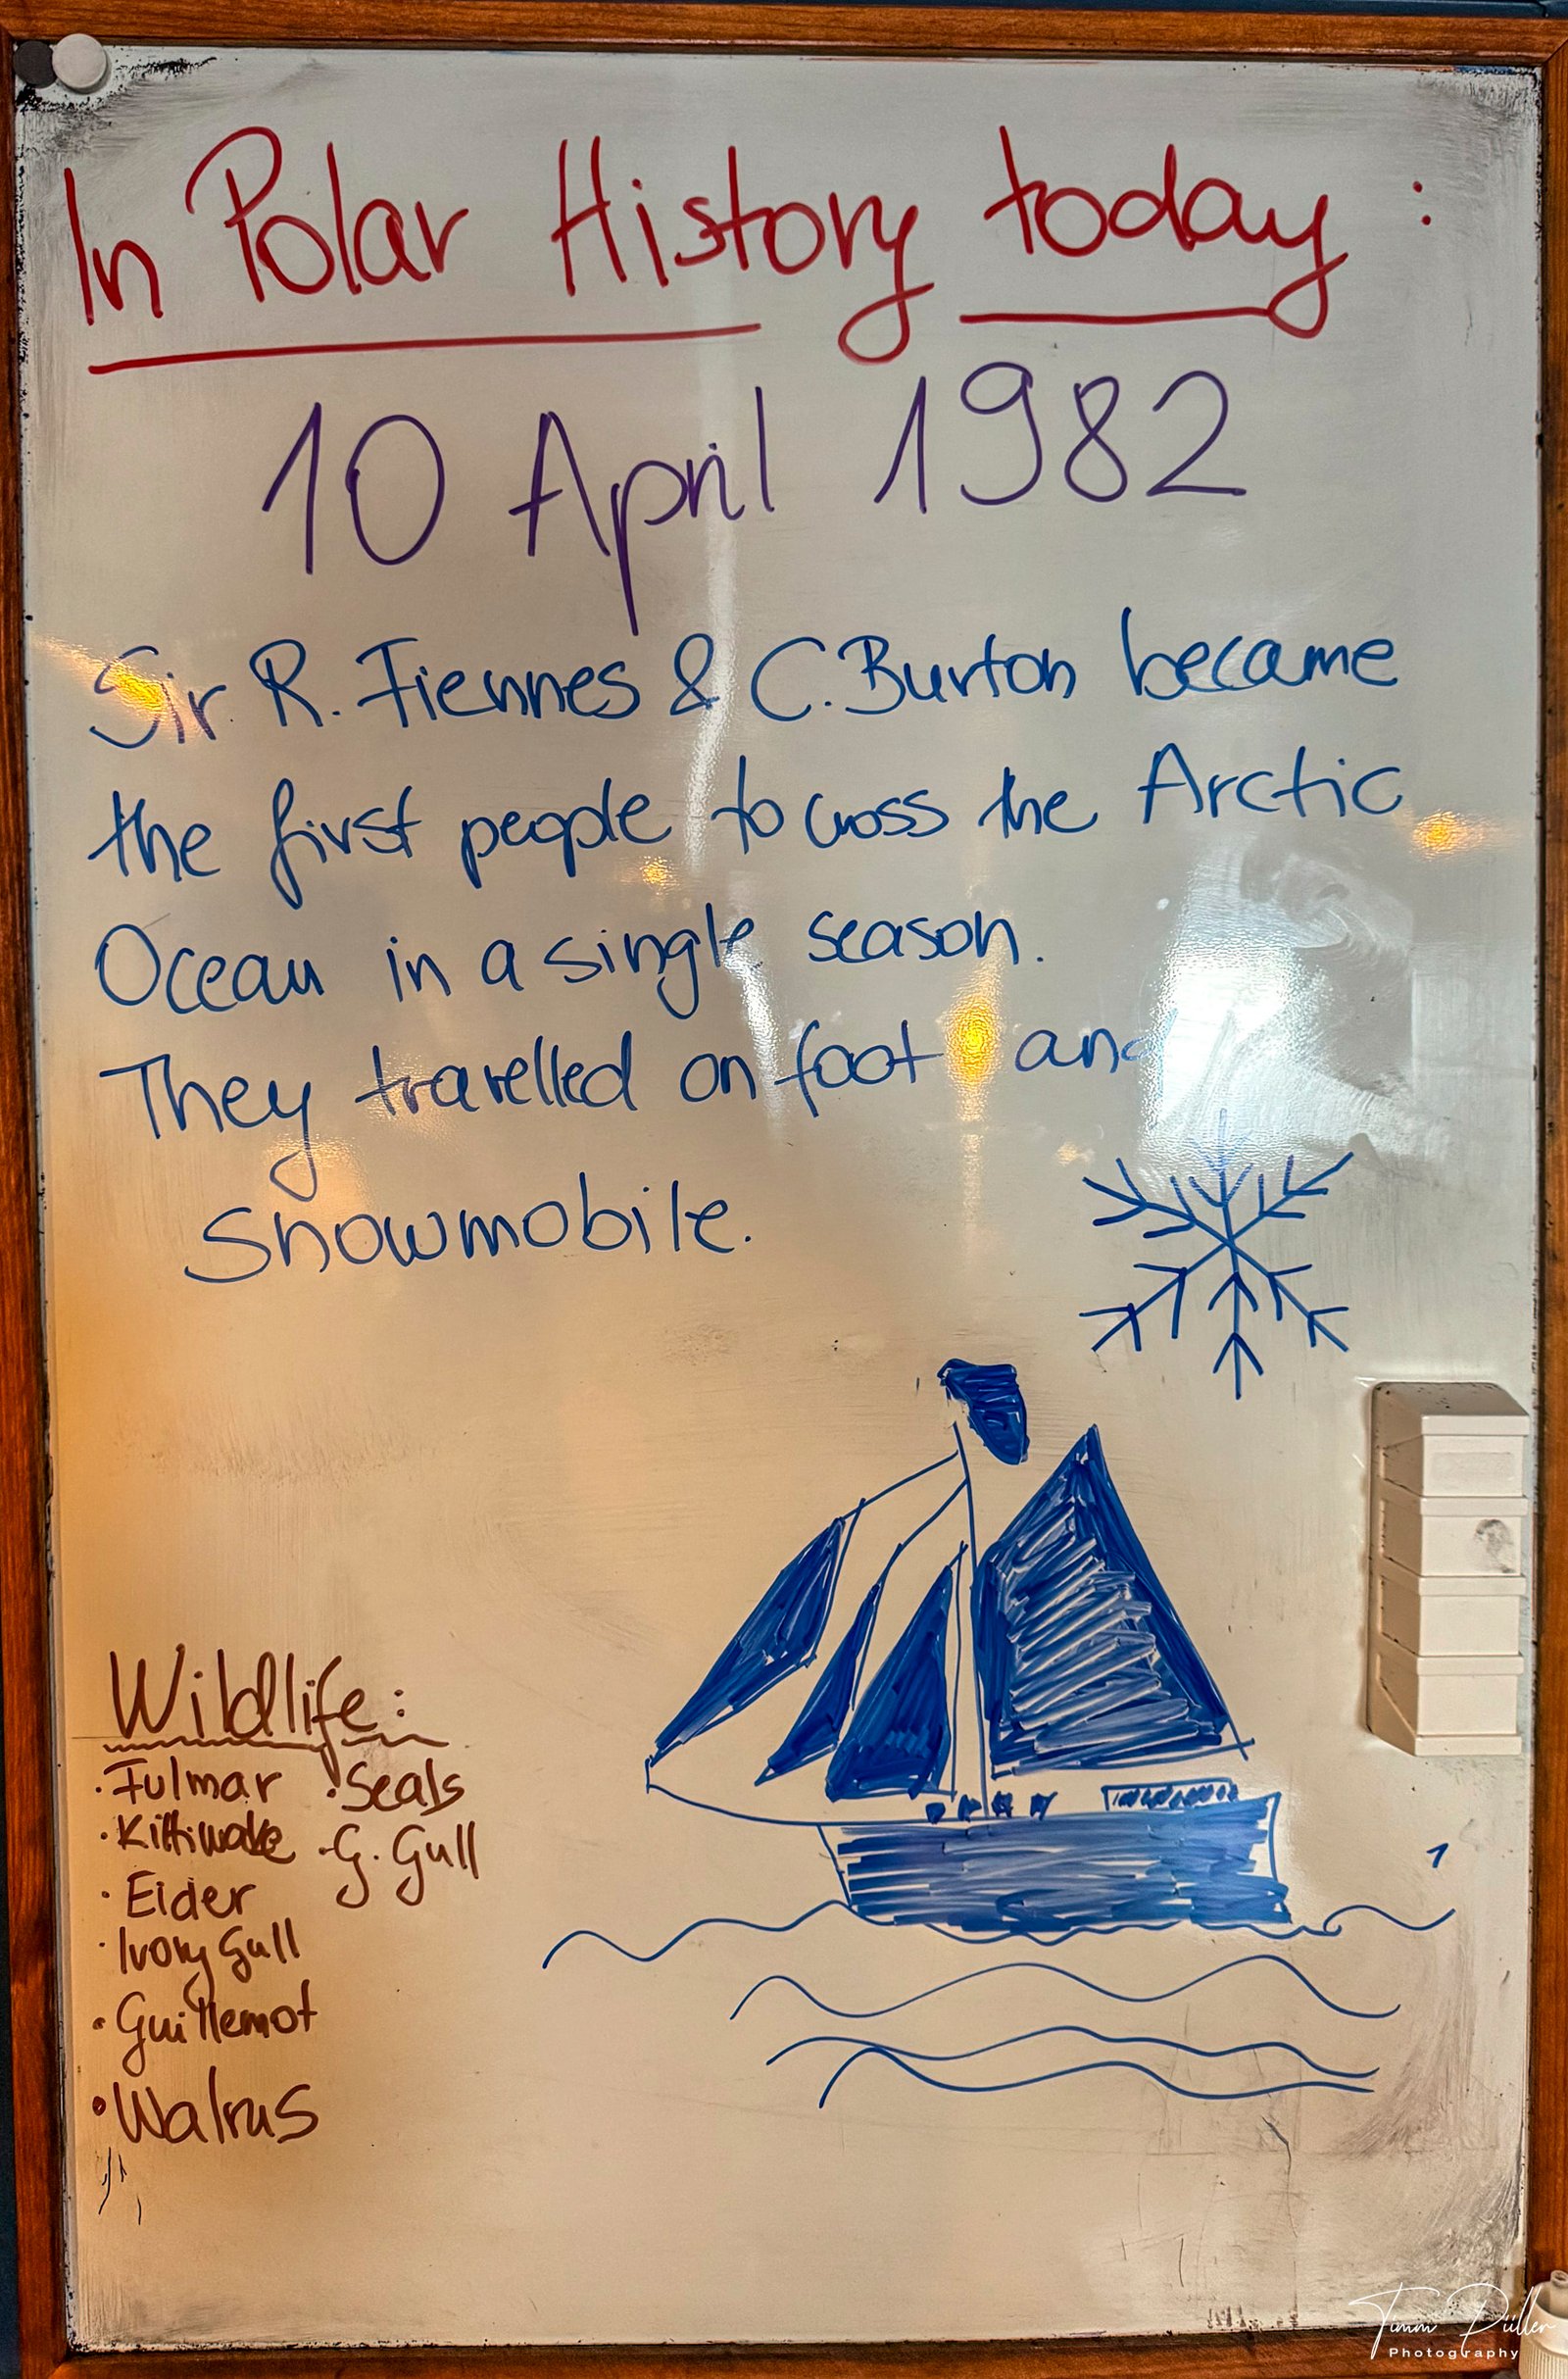 In Polar History today:
10 April 1982
Sir R. Fiennes & C. Burton became
the first people to cross the Arctic
Ocean in a single season.
They travelled on foot and
Snowmobile.
Wildlife:
· Fulmar
· Kittiwake
· Eider
· Ivory Gull
· Guillemot
· Walrus
· Seals
· G. Gull
Timm Püller
Photography